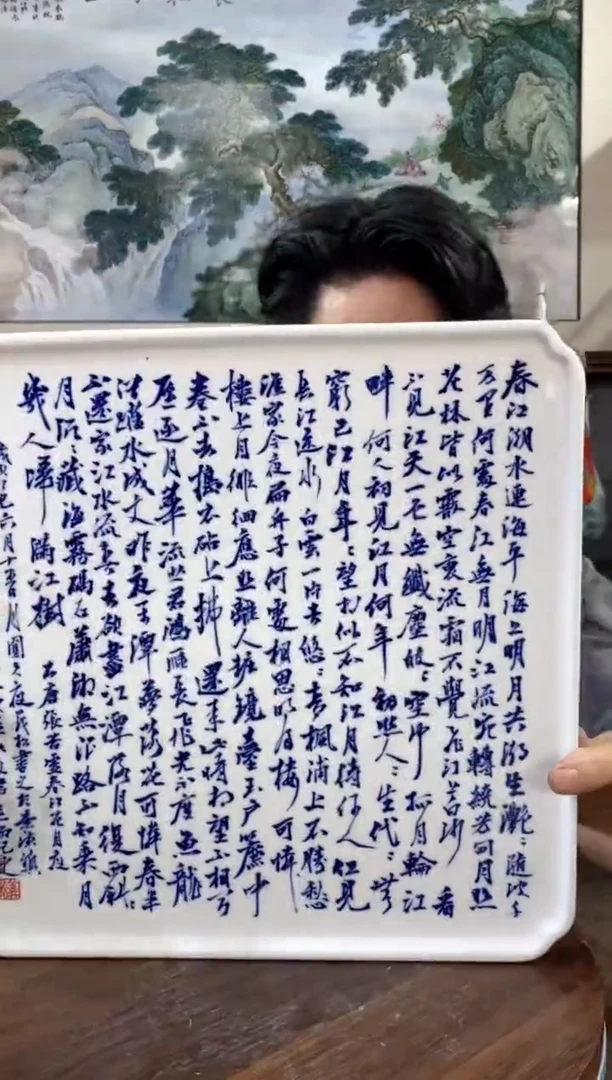 春江潮水連海平海上明月共潮生灧〻隨波千
万里何處春江無月明江流宛轉繞芳甸月照
花林皆似霰空裏流霜不覺飛汀白沙看
不見江天一色無纖塵皎〻空中孤月輪江
畔何人初見江月何年初照人〻生代〻無
窮已江月年〻望相似不知江月待何人但見
長江送水白雲一片去悠〻青楓浦上不勝愁
誰家今夜扁舟子何處相思明月樓可憐
樓上月徘徊應照離人妝鏡臺玉戶簾中
卷不去擣衣砧上拂還來此時相望不相聞
願逐月華流照君鴻雁長飛光不度魚龍
潛躍水成文昨夜閒潭夢落花可憐春半
不還家江水流春去欲盡江潭落月復西斜〻
月沉〻藏海霧碣石瀟湘無限路不知乘月
幾人歸滿江樹
右唐張若虛春江花月夜
乙巳六月十五日月圓之夜書之於景德鎮